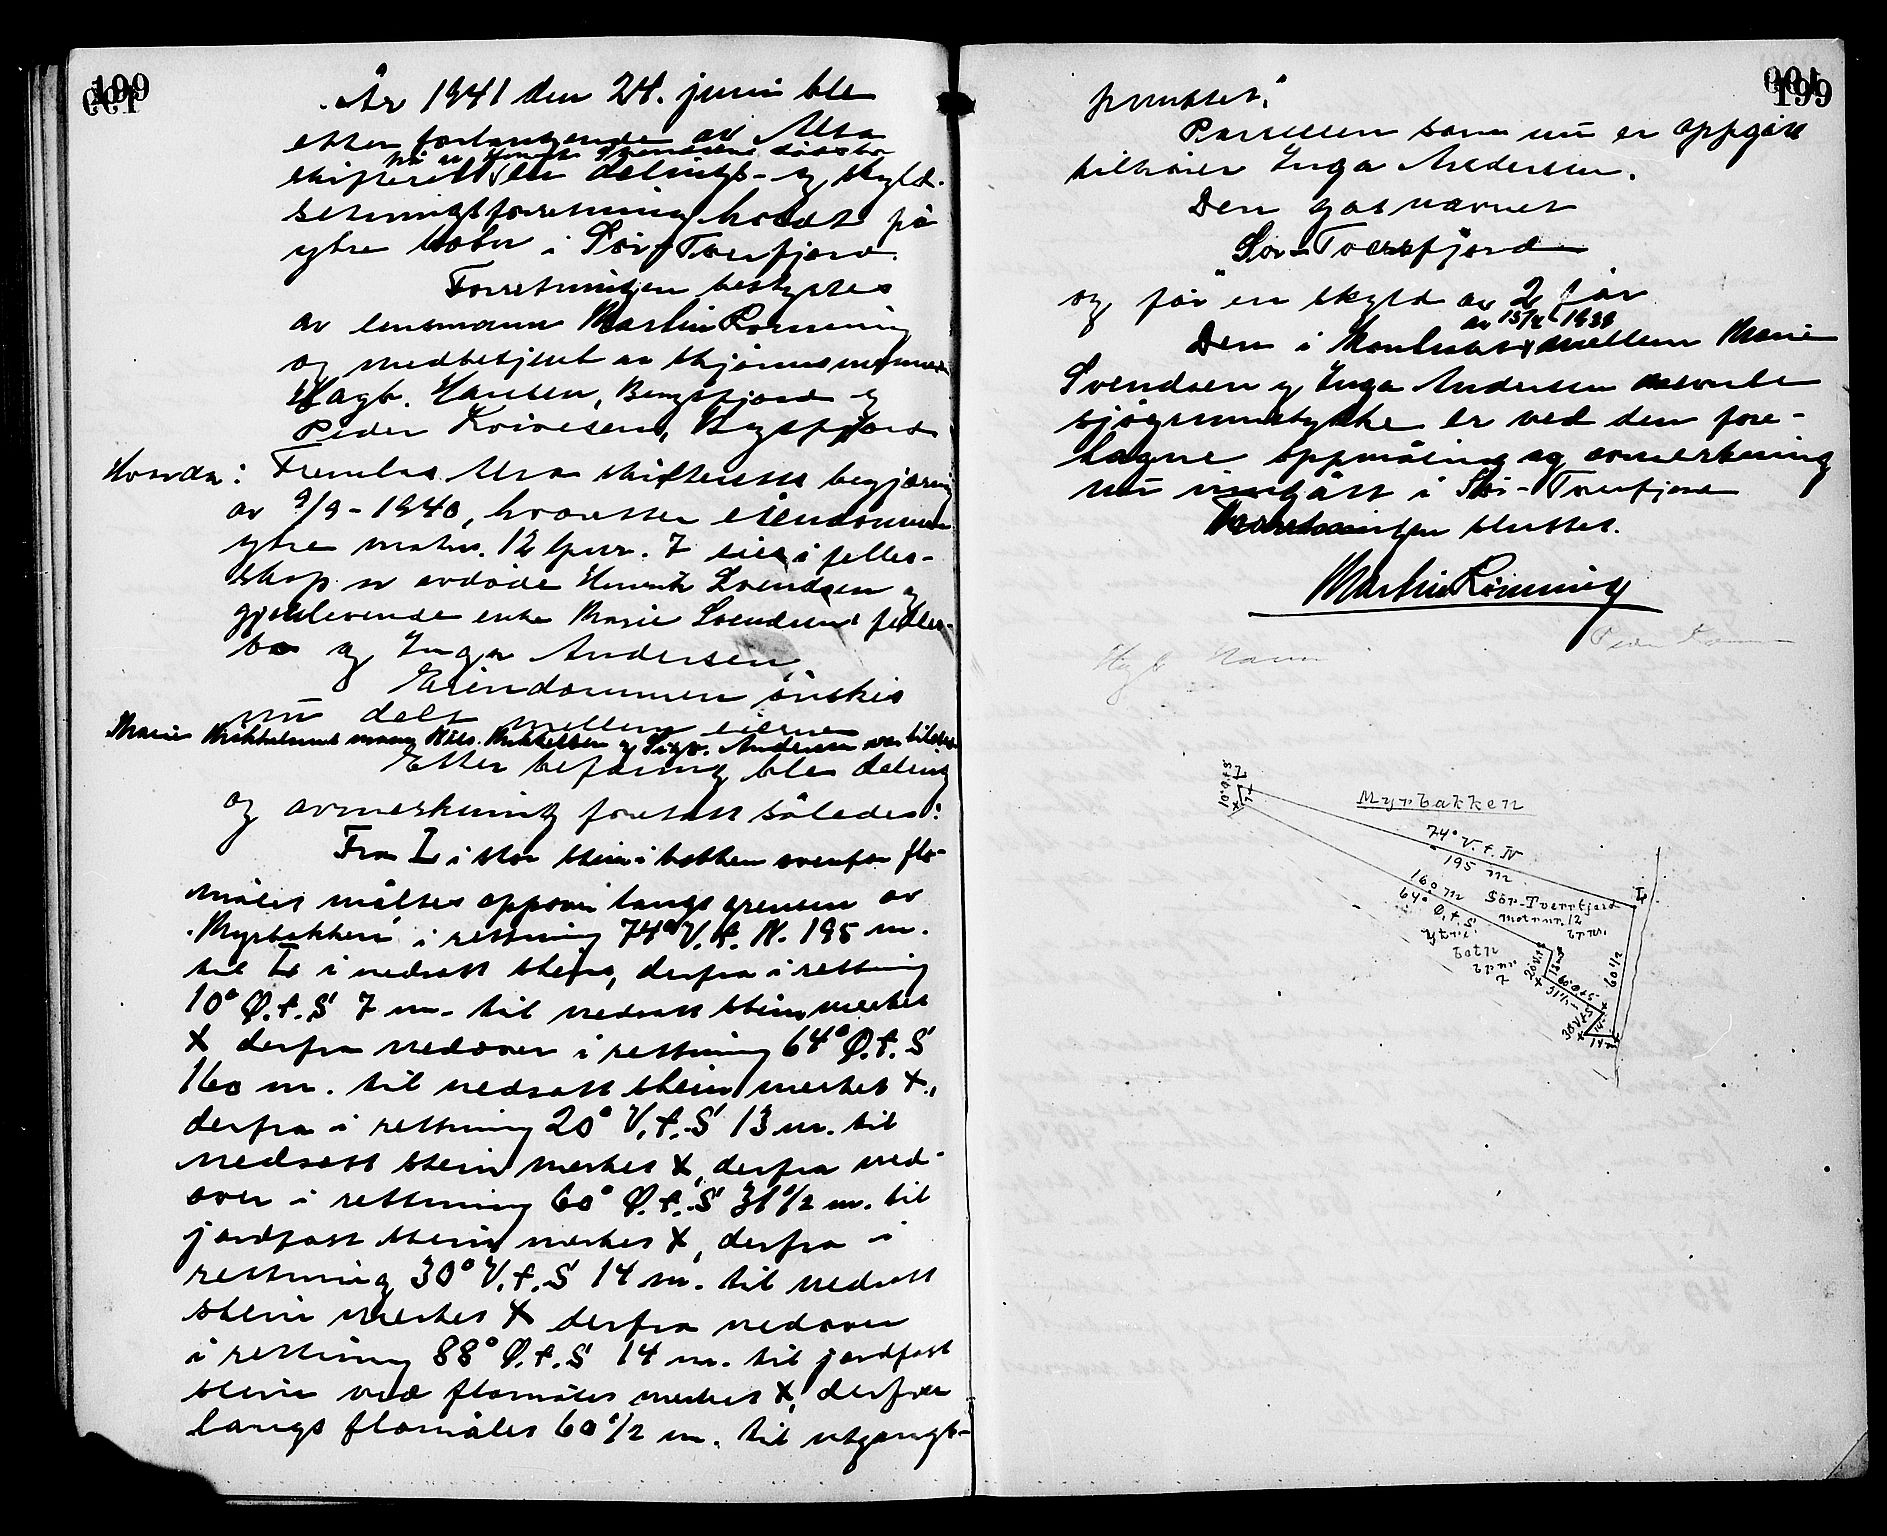 199
År 1941 den 24. juni ble
etter forlangende av Alta
på v. Henrik Svendsens dødsbo
skifterett en delings- og skyld-
setningsforretning holdt på
ytre botn i Sör-Tverfjord.
Forretningen bestyrtes
av lensmann Martin Rønning
og medbetjent av skjønnsmennene
Hagb. Hansen, Bergsfjord og
Peder Iversen, Bergsfjord
Hvorda: Fremlas Alta skifteretts begjæring
av 9/9-1940, hvoretter eiendommen
ytre matnr. 12 bnr. 7 eies i felles-
skap av avdöde Henrik Svendsen og
gjenlevende enke Marie Svendsens felles-
bo og Inga Andersen.
Eiendommen önskes
nu delt mellem eierne
Marie Mikkelsens mann Nils Mikkelsen og Sigv. Andersen var tilstede
Etter befaring ble deling
og avmerkning foretatt således:
Fra I i stor stein i bakken ovenfor flo-
målet måltes oppover langs grensen av
"Myrbakken" i rettning 74° V.t.N. 195 m.
til I i nedsatt stein, derfra i rettning
10° Ø.t.S 7 m. til nedsatt stein merket
X derfra nedover i rettning 64° Ø.t.S
160 m. til nedsatt stein merket X,
derfra i rettning 20° V.t.S 13 m. til
nedsatt stein merket X, derfra ned-
over i rettning 60° Ø.t.S 31 1/2 m. til
jordfast stein merket X, derfra i
rettning 30° V.t.S 14 m. til nedsatt
stein merket X derfra nedover
i rettning 88° Ø.t.S 14 m. til jordfast
stein ved flomålet merket X, derfra
langs flomålet 60 1/2 m. til utgangs-
199
punktet.
Parsellen som nu er oppgått
tilhører Inga Andersen.
Den gis navnet
"Sör-Tverrfjord"
og får en skyld av 2 øre
av 15/4 1939
Den i kontrakt mellem Marie
Svendsen og Inga Andersen nevnte
sjøgrunnstykke er ved den fore-
tagne oppmåling og avmerkning
nu inngått i Sör-Tverfjord
Forretningen sluttet.
Martin Rønning
Hagb Hansen
Myrbakken
10° Ø.t.S
7 m
74° V.t.N
195 m
160 m
64° Ø.t.S.
Sör-Tverrfjord
matrnr. 12
brnr.
Ytre
botn
brnr
7
20° V.t.S
13 m
60° Ø.t.S
31 1/2 m
60 1/2
30° V.t.S
14 m
14 m